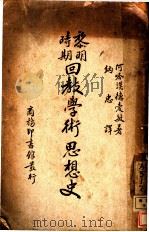 黎明
時期
回教學術思想史
阿哈謨德愛敏著
納忠譯
商務印書館發行